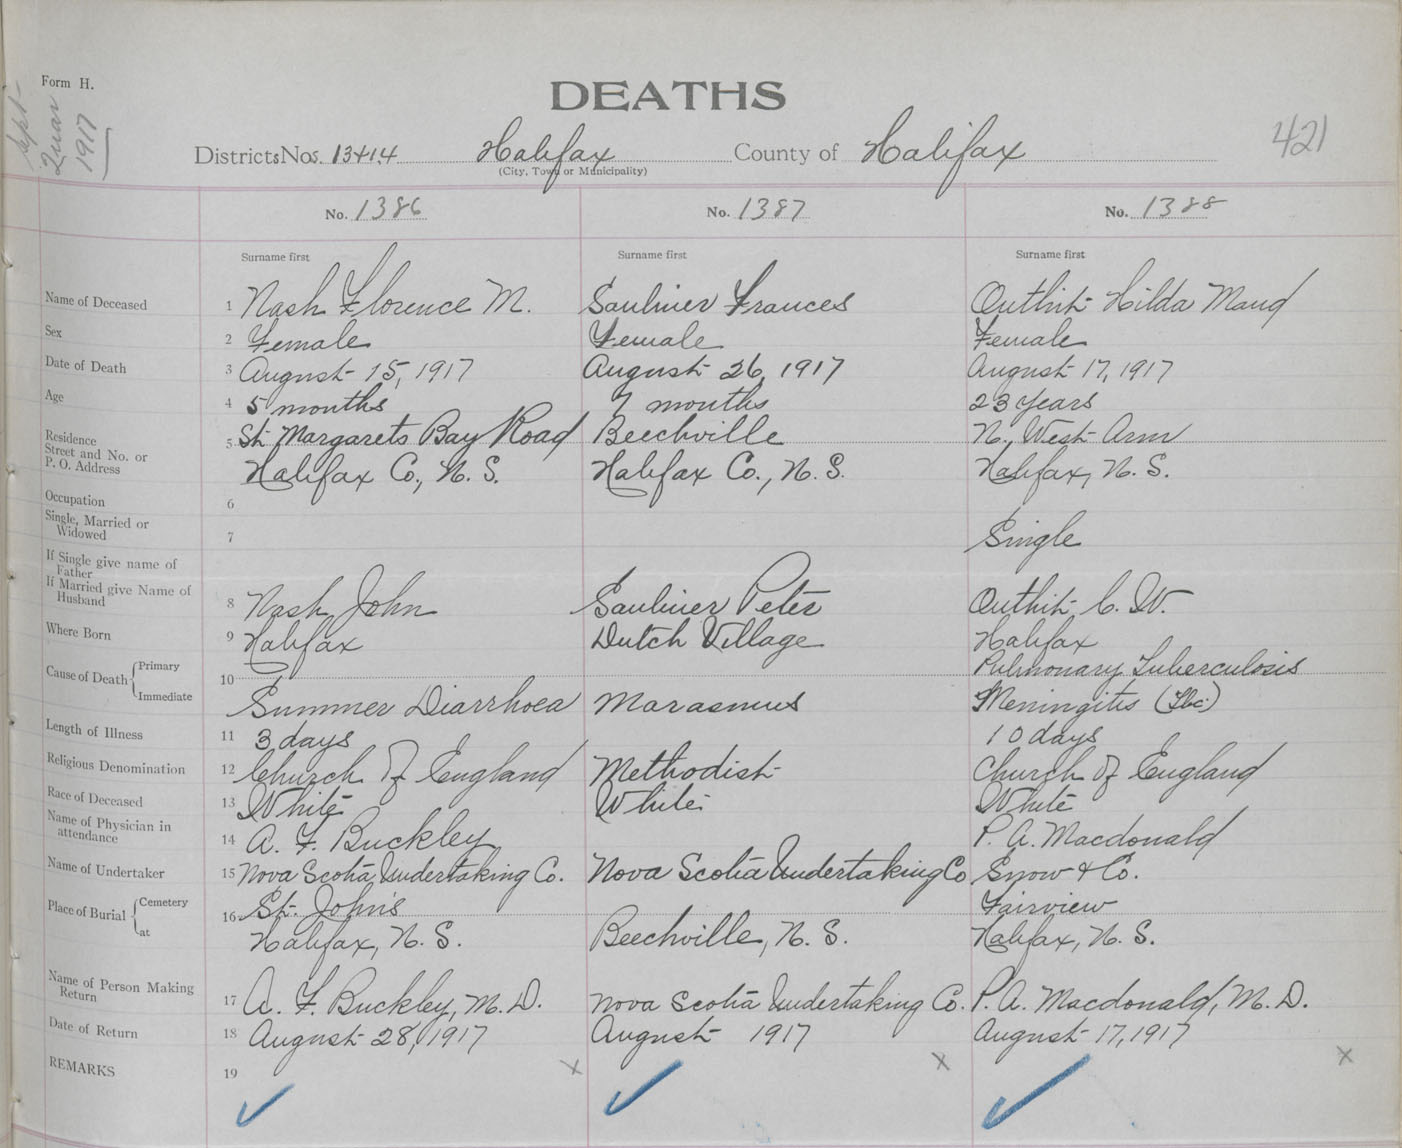 Form H.
Sept-
Quar
1917
DEATHS
Districts Nos. 13+14 Halifax County of Halifax
(City, Town or Municipality)
421
No. 1386 No. 1387 No. 1388
Surname first Surname first Surname first
Name of Deceased 1 Nash Florence M. Saulnier Frances Outhit Hilda Maud
Sex 2 Female Female Female
Date of Death 3 August 15, 1917 August 26, 1917 August 17, 1917
Age 4 5 months 7 months 23 years
Residence
Street and No. or 5 St. Margarets Bay Road Beechville N. West Arm
P. O. Address Halifax Co., N. S. Halifax Co., N. S. Halifax, N. S.
Occupation 6
Single, Married or
Widowed 7 Single
If Single give name of
Father
If Married give Name of
Husband 8 Nash John Saulnier Peter Outhit C. W.
Where Born 9 Halifax Dutch Village Halifax
Cause of Death { Primary 10 Pulmonary Tuberculosis
Immediate Summer Diarrhoea Marasmus Meningitis (Tbc.)
Length of Illness 11 3 days 10 days
Religious Denomination 12 Church of England Methodist Church of England
Race of Deceased 13 White White White
Name of Physician in
attendance 14 A. F. Buckley P. A. Macdonald
Name of Undertaker 15 Nova Scotia Undertaking Co. Nova Scotia Undertaking Co Snow & Co.
Place of Burial { Cemetery 16 St. John's Fairview
at Halifax, N. S. Beechville, N. S. Halifax, N. S.
Name of Person Making
Return 17 A. F. Buckley, M. D. Nova Scotia Undertaking Co. P. A. Macdonald, M. D.
Date of Return 18 August 28, 1917 August 1917 August 17, 1917
REMARKS 19 x x x
✓ ✓ ✓